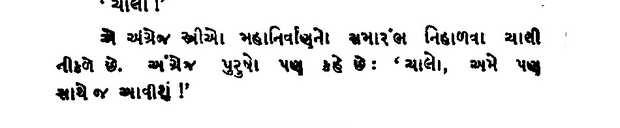 ‘ ચાલો !’
એ અંગ્રેજ સ્ત્રીઓ મહાનિર્વાણનો સમારંભ નિહાળવા ચાલી
નીકળે છે. અંગ્રેજ પુરુષો પણ કહે છે : ‘ ચાલો, અમે પણ
સાથે જ આવીશું !’